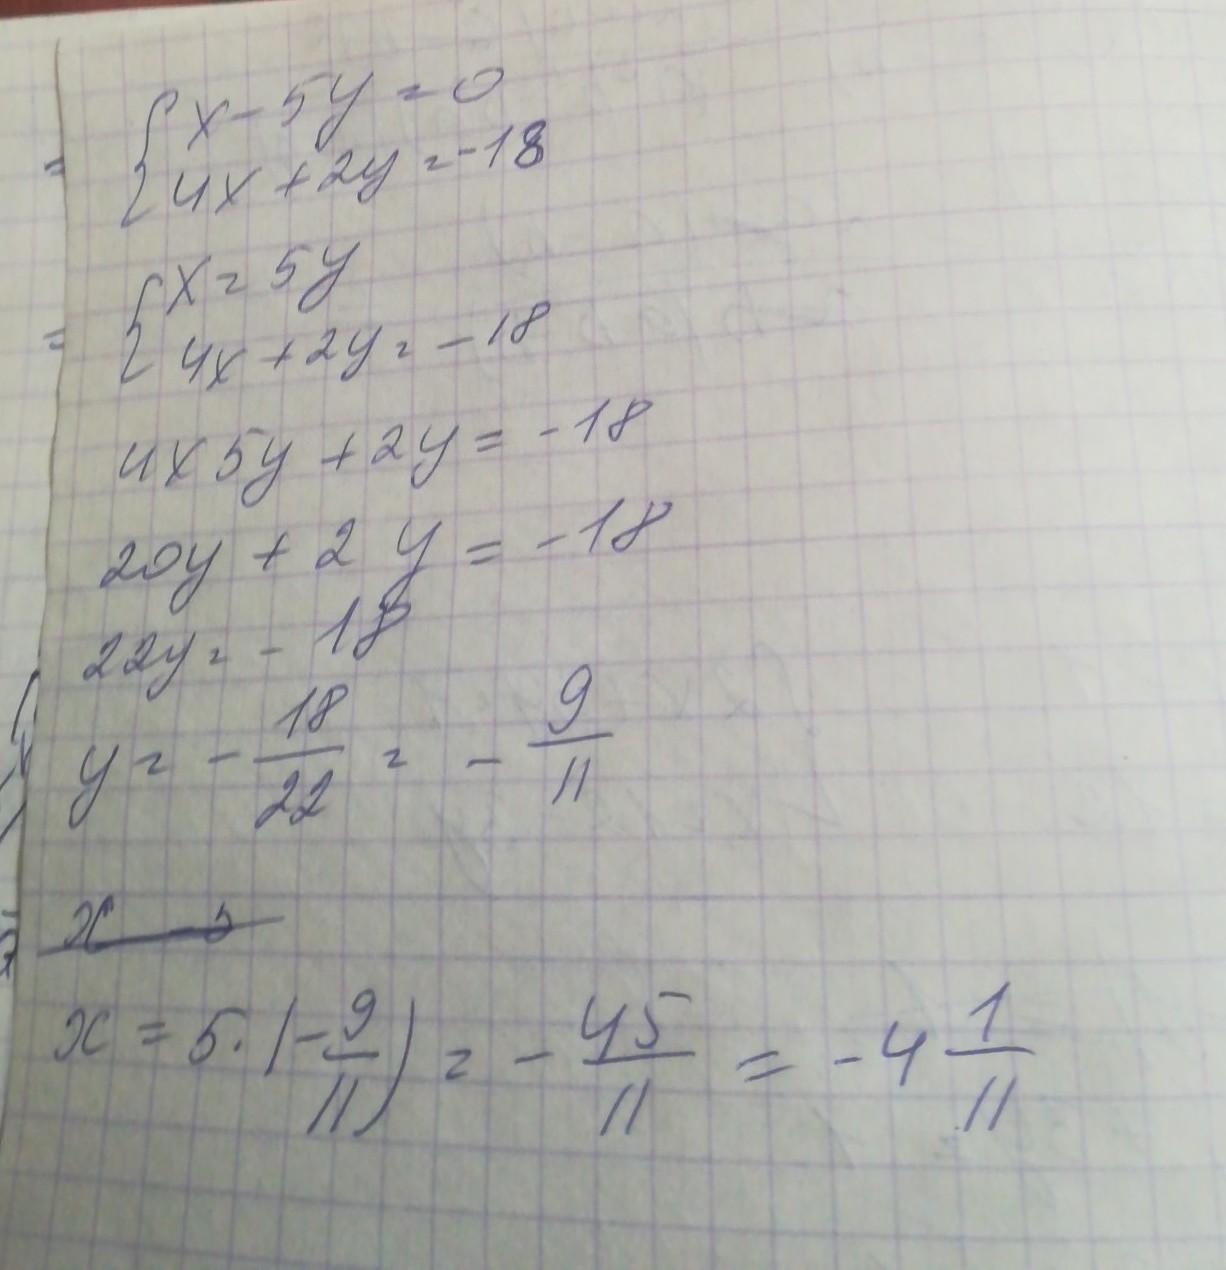 = { x - 5y = 0
4x + 2y = -18
= { x = 5y
4x + 2y = -18
4x5y + 2y = -18
20y + 2y = -18
22y = -18
y = - 18/22 = - 9/11
x = 5 · (- 9/11) = - 45/11 = -4 1/11